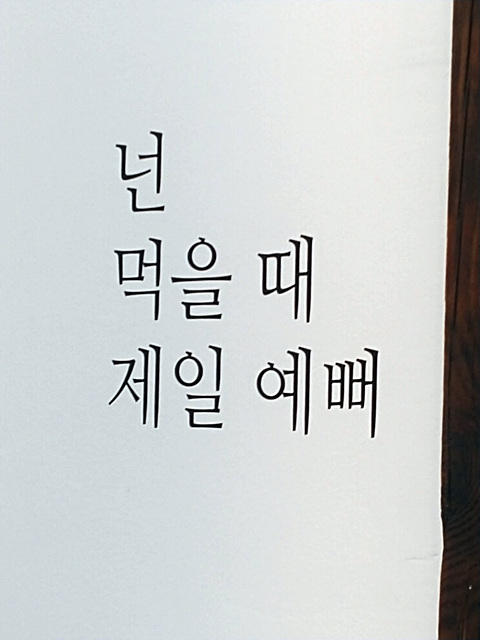 넌
먹을 때
제일 예뻐